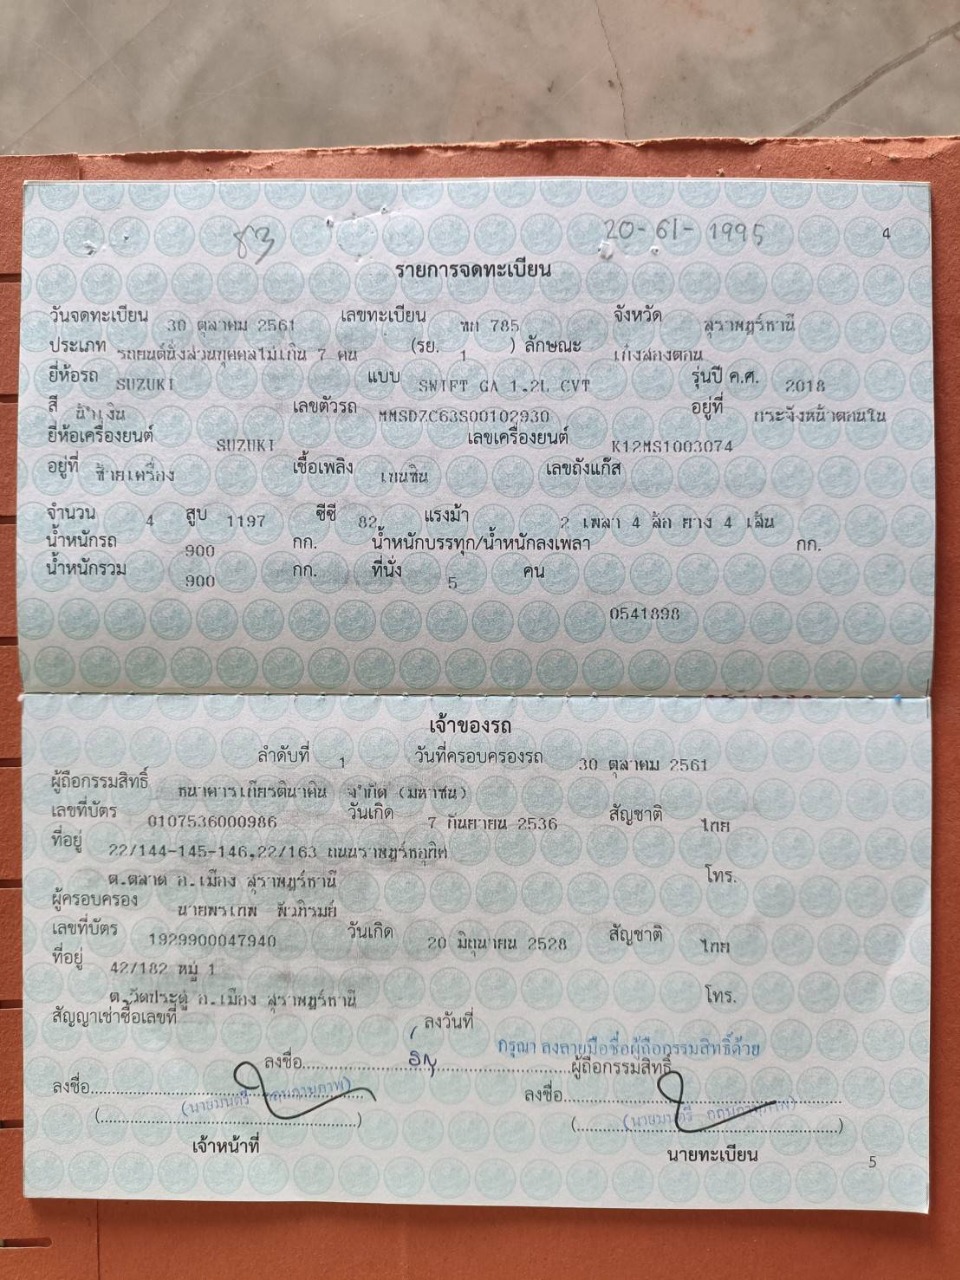 83 20-61-1995 4
รายการจดทะเบียน
วันจดทะเบียน 30 ตุลาคม 2561 เลขทะเบียน 785 จังหวัด สุราษฎร์ธานี
ประเภท รถยนต์นั่งส่วนบุคคลไม่เกิน 7 คน (รย. 1 ) ลักษณะ เก๋งสองตอน
ยี่ห้อรถ SUZUKI แบบ SWIFT GA 1.2L CVT รุ่นปี ค.ศ. 2018
สี น้ำเงิน เลขตัวรถ MMSDZC63S00102930 อยู่ที่ กระจังหน้าตอนใน
ยี่ห้อเครื่องยนต์ SUZUKI เลขเครื่องยนต์ K12MS1003074
อยู่ที่ ซ้ายเครื่อง เชื้อเพลิง เบนซิน เลขถังแก๊ส
จำนวน 4 สูบ 1197 ซีซี 82 แรงม้า 2 เพลา 4 ล้อ ยาง 4 เส้น
น้ำหนักรถ 900 กก. น้ำหนักบรรทุก/น้ำหนักลงเพลา กก.
น้ำหนักรวม 900 กก. ที่นั่ง 5 คน
0541898
เจ้าของรถ
ลำดับที่ 1 วันที่ครอบครองรถ 30 ตุลาคม 2561
ผู้ถือกรรมสิทธิ์ ธนาคารเกียรตินาคิน จำกัด (มหาชน)
เลขที่บัตร 0107536000986 วันเกิด 7 กันยายน 2536 สัญชาติ ไทย
ที่อยู่ 22/144-145-146,22/163 ถนนราษฎร์อุทิศ
ต.ตลาด อ.เมือง สุราษฎร์ธานี โทร.
ผู้ครอบครอง นายพรเทพ พัวภิรมย์
เลขที่บัตร 1929900047940 วันเกิด 20 มิถุนายน 2528 สัญชาติ ไทย
ที่อยู่ 42/182 หมู่ 1
ต.วัดประดู่ อ.เมือง สุราษฎร์ธานี โทร.
สัญญาเช่าซื้อเลขที่ ลงวันที่
กรุณา ลงลายมือชื่อผู้ถือกรรมสิทธิ์ด้วย
ลงชื่อ ผู้ถือกรรมสิทธิ์
ลงชื่อ ลงชื่อ
(นายมนตรี (นายมนตรี
เจ้าหน้าที่ นายทะเบียน
5